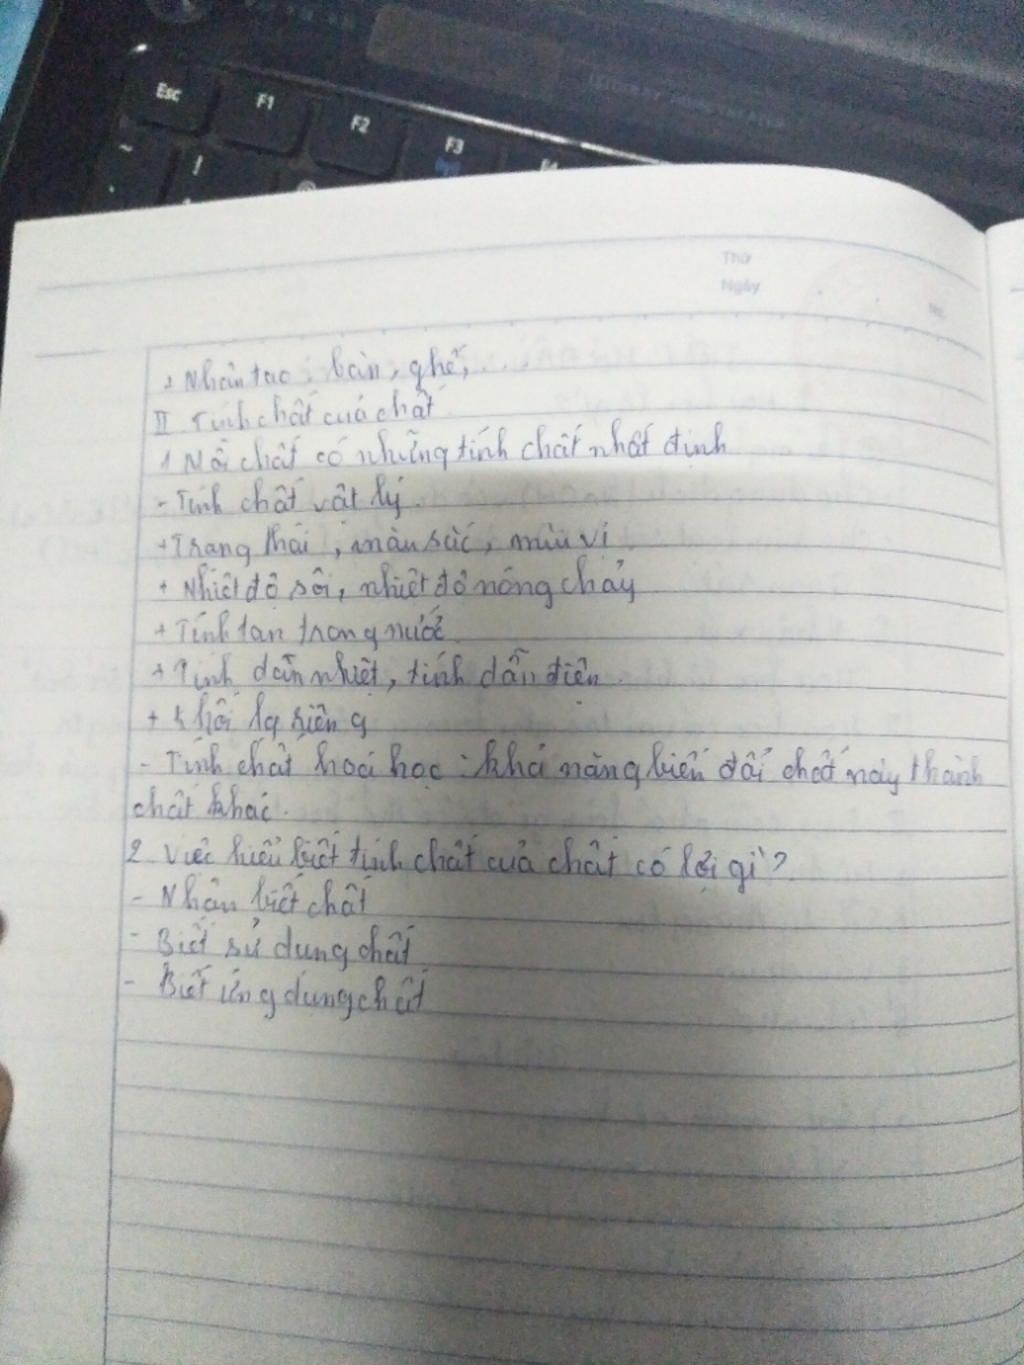 Esc F1 F2 F3 F4
~ !
Thứ
Ngày
+ Nhân tạo: bàn, ghế, ...
II. Tính chất của chất
1 Mỗi chất có những tính chất nhất định
- Tính chất vật lý
+ Trạng thái, màu sắc, mùi vị
+ Nhiệt độ sôi, nhiệt độ nóng chảy
+ Tính tan trong nước
+ Tính dẫn nhiệt, tính dẫn điện
+ Khối lg riêng
- Tính chất hoá học: khả năng biến đổi chất này thành
chất khác.
2 Việc hiểu biết tính chất của chất có lợi gì?
- Nhận biết chất
- Biết sử dụng chất
- Biết ứng dụng chất